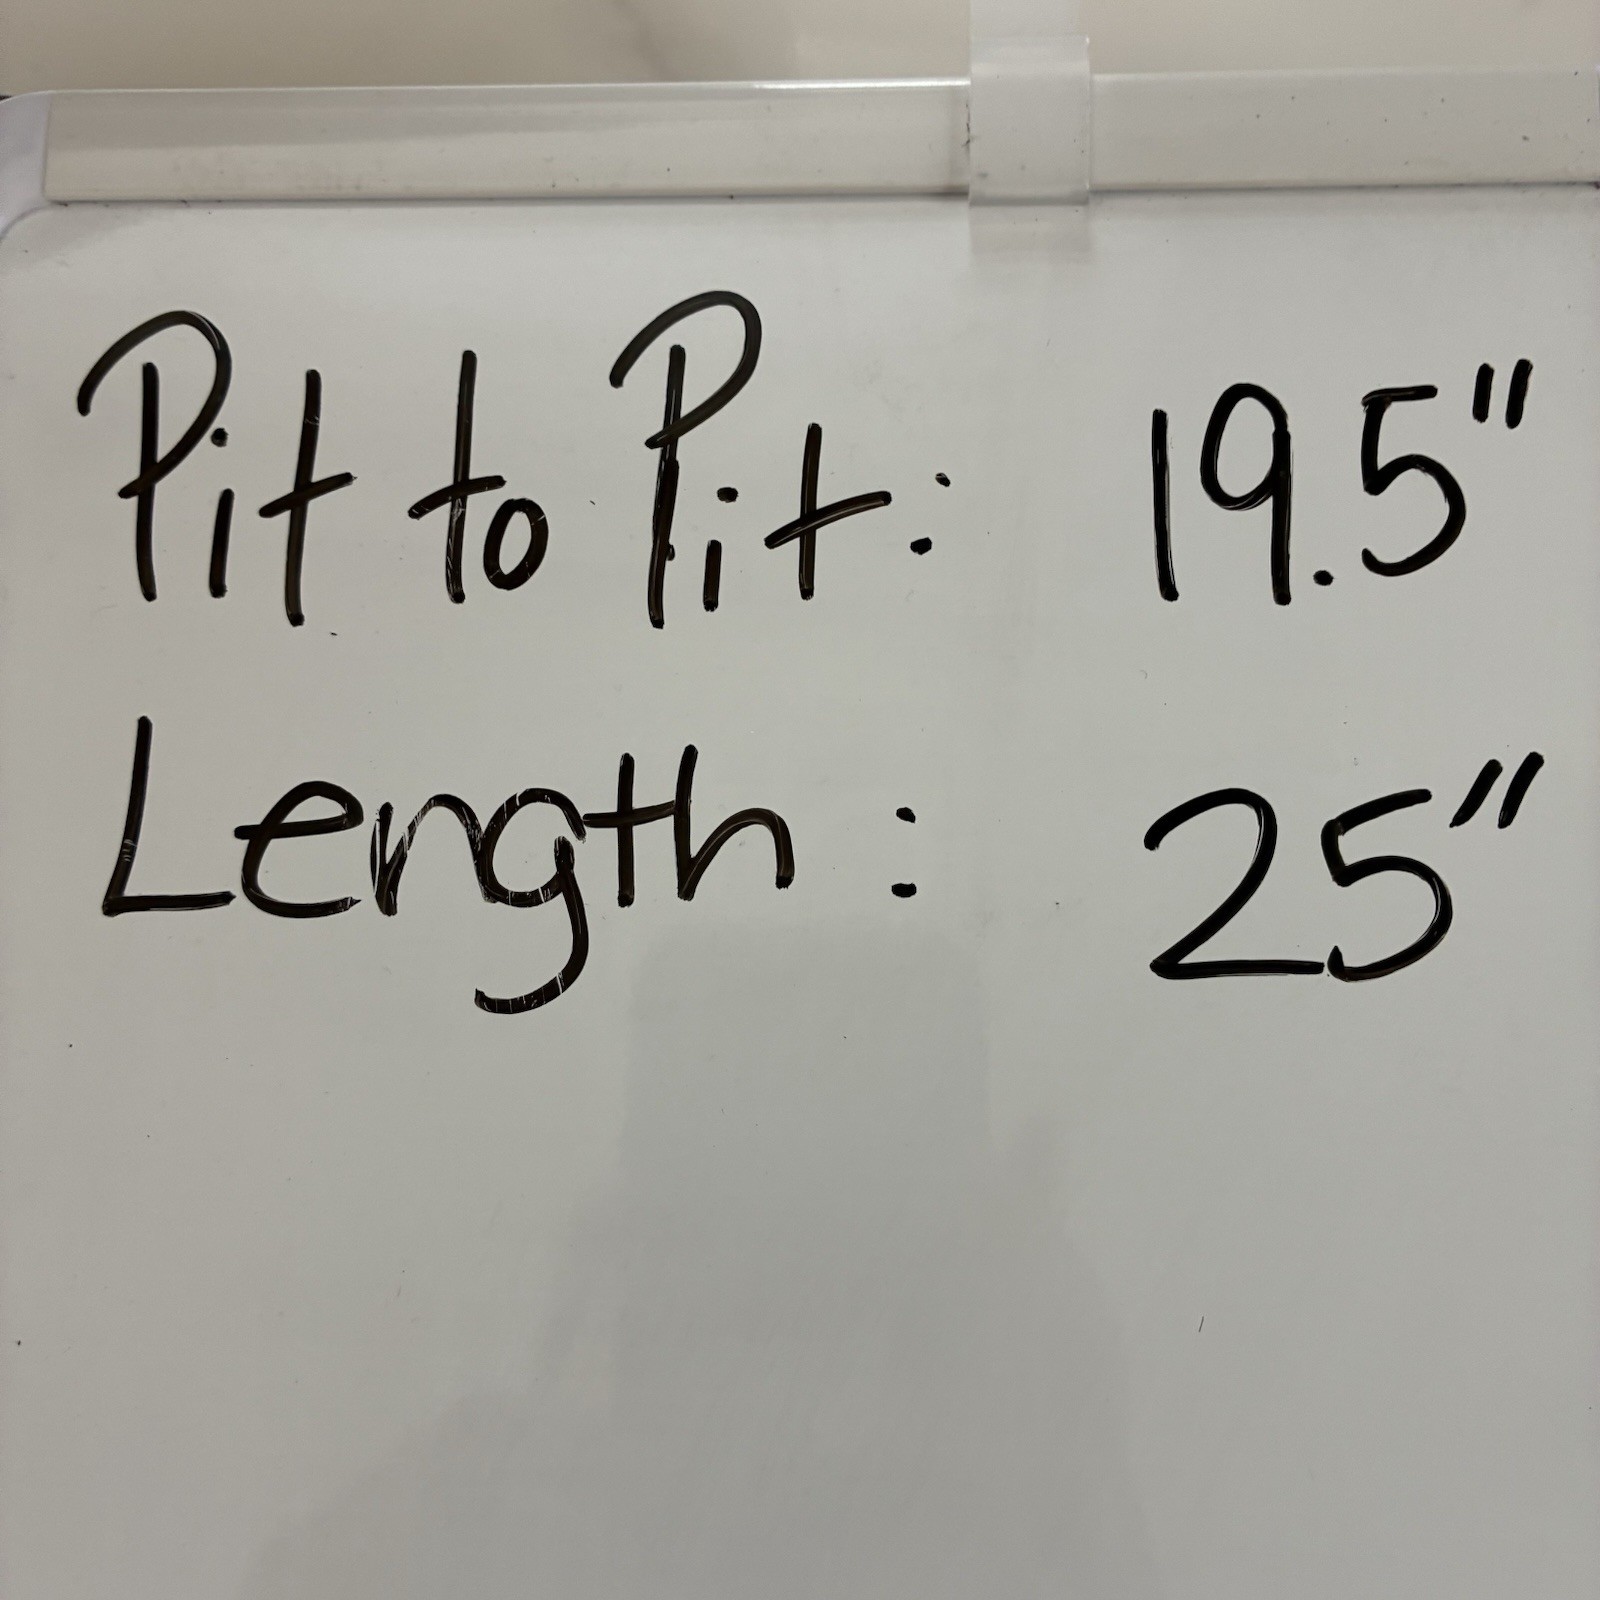 Pit to Pit: 19.5"
Length: 25"